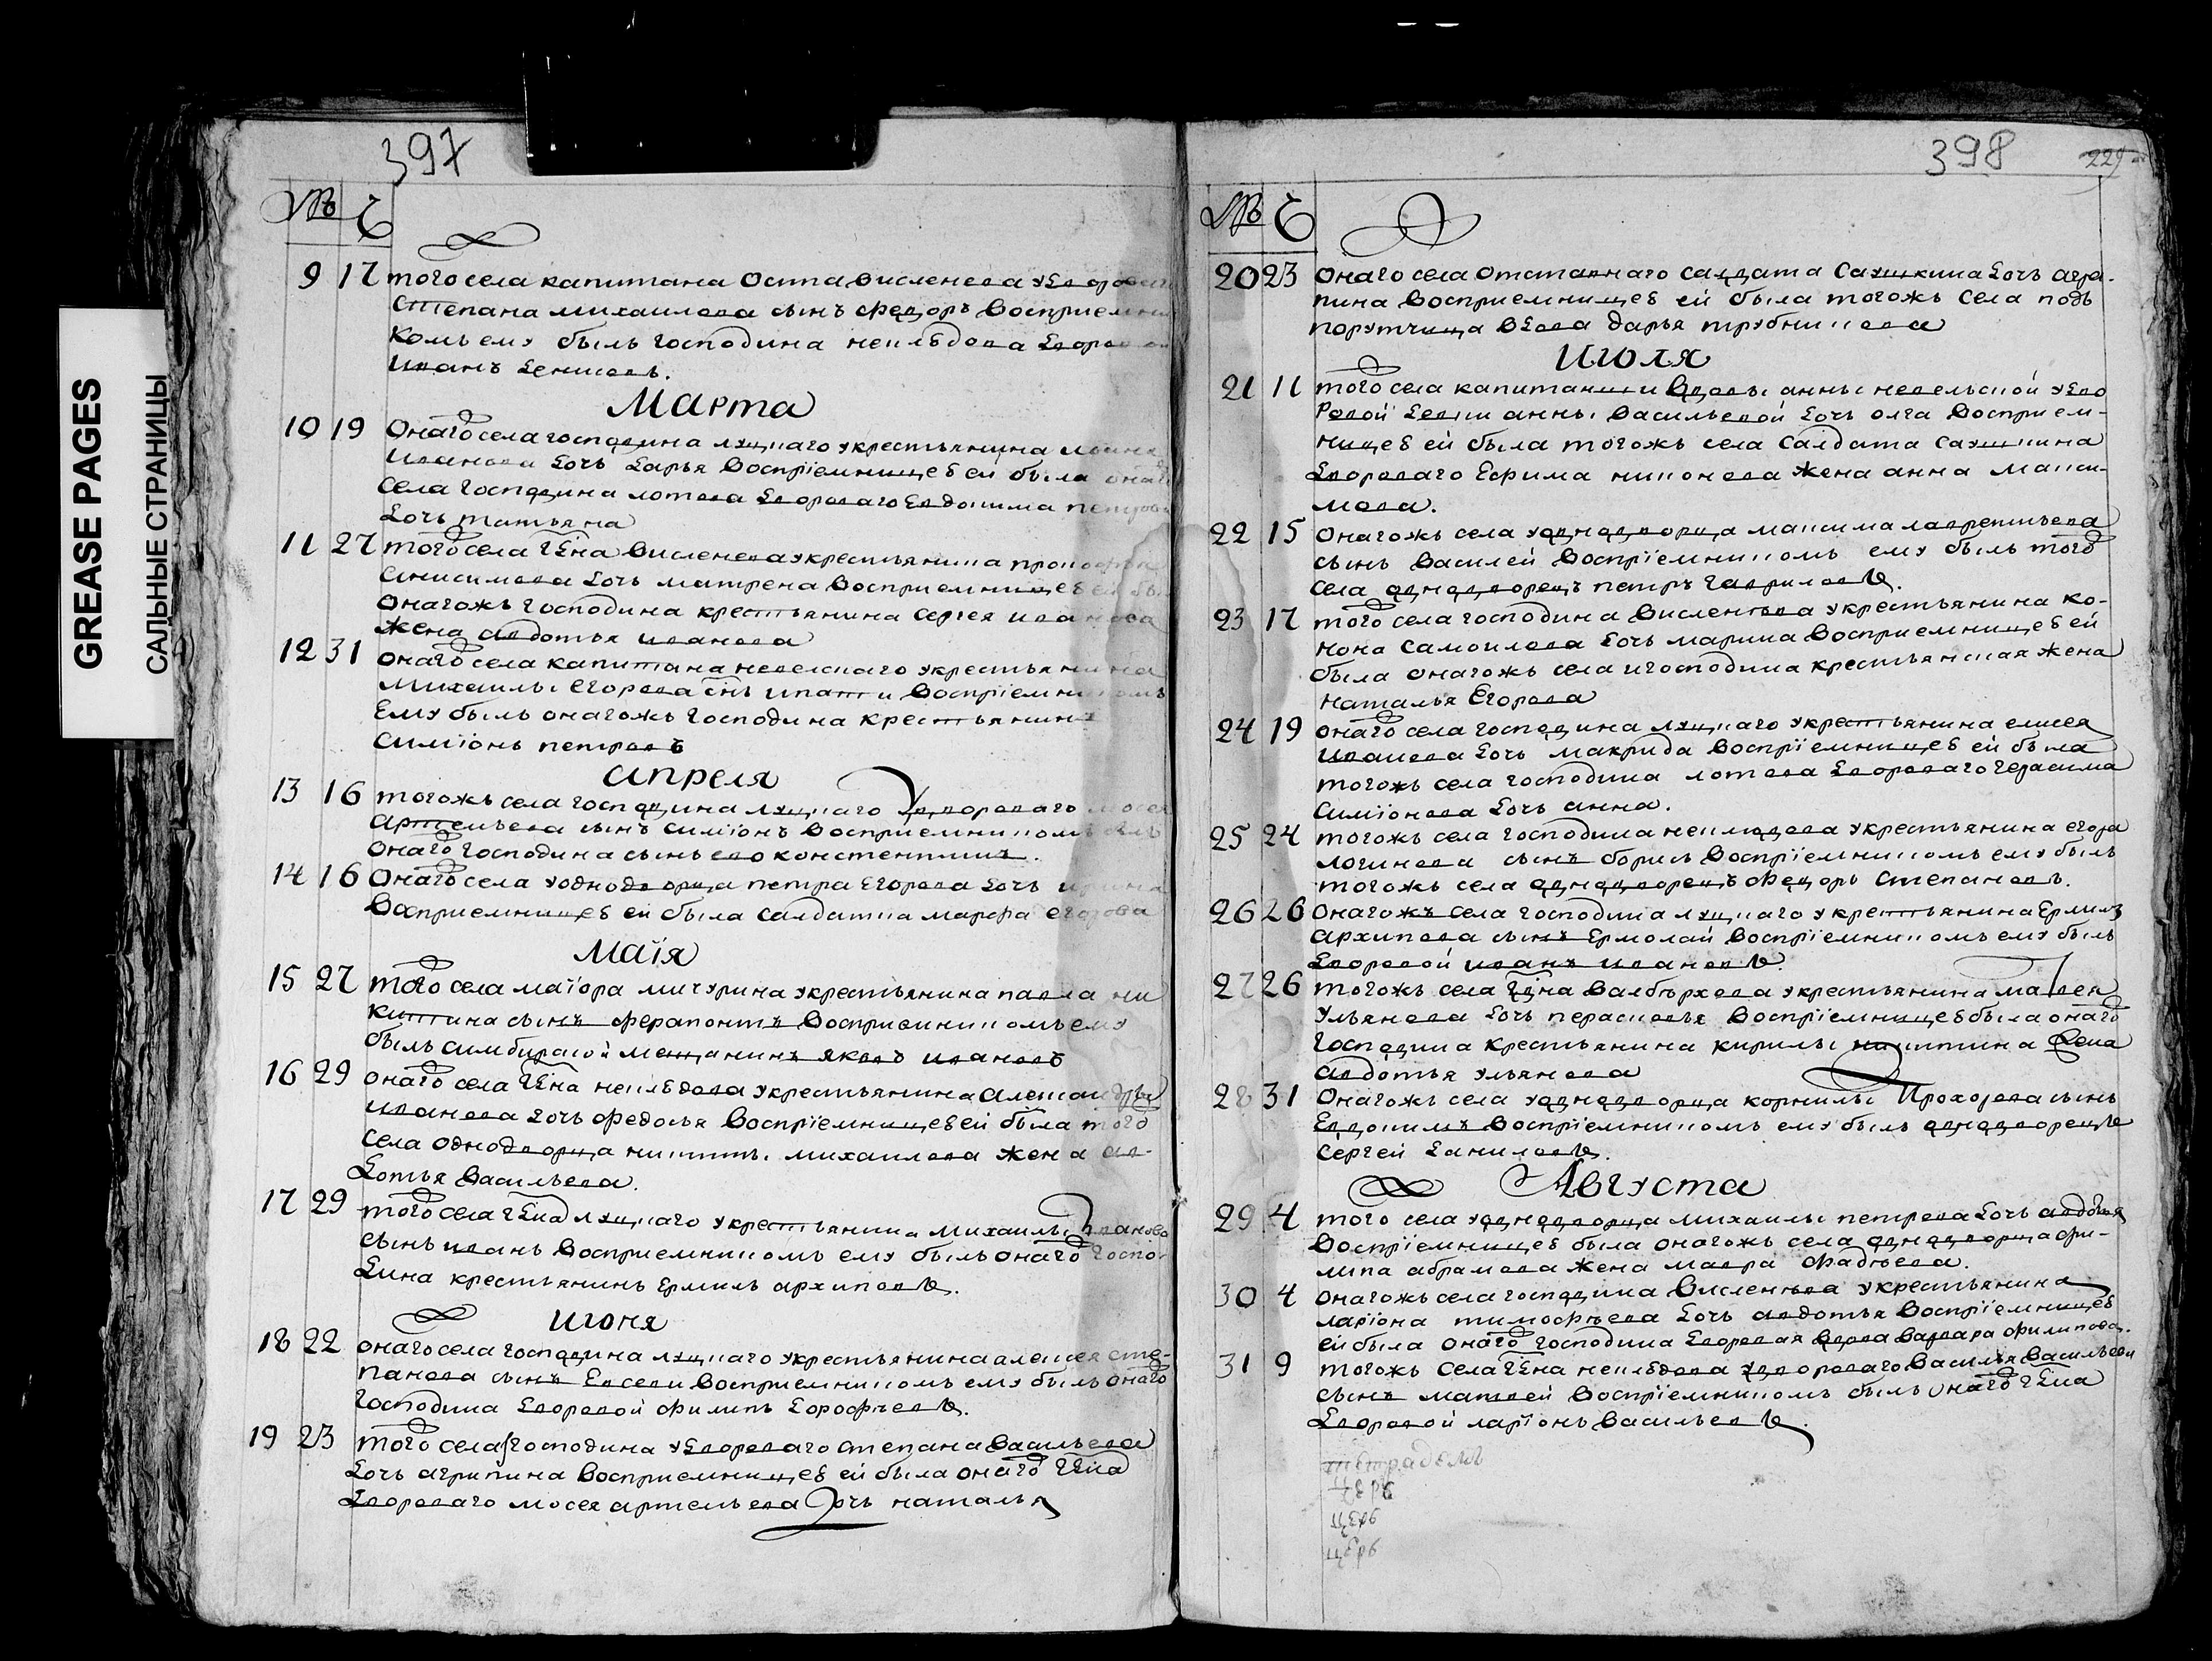 GREASE PAGES
САЛЬНЫЕ СТРАНИЦЫ
397
№ Ч
9 17 того села капитана Осипа висленева
Степана михаилова сынъ федоръ восприемни
комъ ему былъ господина неклюдова дворовои
иванъ денисовъ.
Марта
10 19 Онаго села господина луцкаго укрестьянина
иванова дочь дарья восприемницею ей была онаго
села господина лотова двороваго евдокима петрова
дочь татьяна
11 27 того села гдна висленева укрестьянина прокофья
анисимова дочь матрена восприемницею ей была
онагожъ господина крестьянина сергея иванова
жена авдотья иванова
12 31 онаго села капитана невелскаго укрестьянина
михаилы егорова снъ ипати восприемникомъ
Ему былъ онагожъ господина крестьянинъ
симионъ петровъ
апреля
13 16 тогожъ села господина луцкаго удвороваго мосея
артемьева сынъ симионъ восприемникомъ былъ
онаго господина сынъ ево констентинъ.
14 16 Онаго села уоднодворца петра егорова дочь ирина
восприемницею ей была салдатка марфа егорова
маiя
15 27 того села маiора мичурина укрестьянина павла ни
китина сынъ ферапонтъ восприемникомъ ему
былъ симбирской мещанинъ яковъ ивановъ
16 29 онаго села гдна неклюдова укрестьянина александры
иванова дочь федосья восприемницею ей была того
села однодворца никиты михаилова жена ав-
дотья васильева.
17 29 того села гдна луцкаго укрестьянина михаилы иванова
сынъ иванъ восприемникомъ ему былъ онаго госпо-
дина крестьянинъ ермилъ архиповъ.
июня
18 22 онаго села господина луцкаго укрестьянина алексея сте-
панова сынъ Евсеви восприемникомъ ему былъ онаго
господина дворовой филипъ дорофеевъ.
19 23 того села господина удвороваго степана васильева
дочь агрипина восприемницею ей была онаго гдна
двороваго мосея артемьева дочь наталья
398
229
№ Ч
20 23 онаго села отставнаго салдата дочь агра-
пина восприемницею ей была тогожъ села подъ
порутчица вдова дарья трубникова
июля
21 11 того села капитанши вдовы анны невельской удво
ровой девки анны васильевой дочь олга восприем-
ницею ей была тогожъ села салдата
двороваго Ефима никонова жена анна макси-
мова.
22 15 онагожъ села уоднодворца максима лаврентьева
сынъ василей восприемникомъ ему былъ того
села однодворецъ петръ гавриловъ.
23 17 того села господина висленева укрестьянина ко-
нона самоилова дочь марина восприемницею ей
была онагожъ села и господина крестьянская жена
наталья Егорова
24 19 онаго села господина луцкаго укрестьянина елисея
иванова дочь макрида восприемницею ей была
тогожъ села господина лотова двороваго герасима
симионова дочь анна.
25 24 тогожъ села господина неклюдова укрестьянина егора
логинова сынъ борисъ восприемникомъ ему былъ
тогожъ села однодворецъ федоръ степановъ.
26 26 Онагожъ села господина луцкаго укрестьянина Ермила
архипова сынъ Ермолай восприемникомъ ему былъ
дворовой иванъ ивановъ.
27 26 тогожъ села гдна укрестьянина мавея
ульянова дочь перасковья восприемницею была онаго
господина крестьянина кирилы никитина жена
авдотья ульянова
28 31 Онагожъ села уоднодворца корнилы Прохорова сынъ
Евдокимъ восприемникомъ ему былъ однодворецъ
Сергей даниловъ.
Августа
29 4 того села уоднодворца михаилы петрова дочь авдотья
восприемницею была онагожъ села однодворца фи-
липа абрамова жена мавра фадеева.
30 4 онагожъ села господина висленева укрестьянина
лариона тимофеева дочь авдотья восприемницею
ей была онаго господина дворовая вдова варвара филипова.
31 9 тогожъ села гдна неклюдова удвороваго василья васильева
сынъ матвей восприемникомъ былъ онаго гдна
дворовой ларионъ васильевъ.